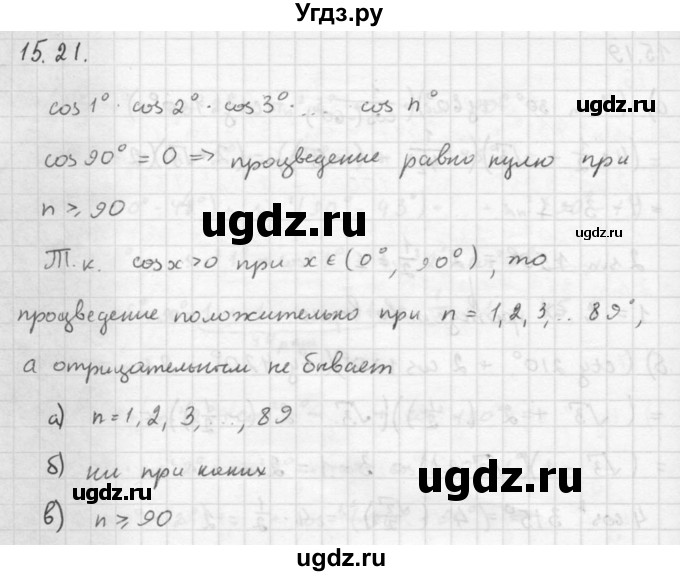 Угдз.ру
15.21.
cos 1° · cos 2° · cos 3° · ... cos n°
угдз.ру
cos 90° = 0 => произведение равно нулю при
n ≥ 90
угдз.ру
угдз.ру
Т.к. cos x > 0 при x ∈ (0°, 90°), то
произведение положительно при n = 1, 2, 3, .. 89°,
а отрицательным не бывает
а) n = 1, 2, 3, ..., 89
б) ни при каких
угдз.ру
угдз.ру
в) n ≥ 90
угдз.ру